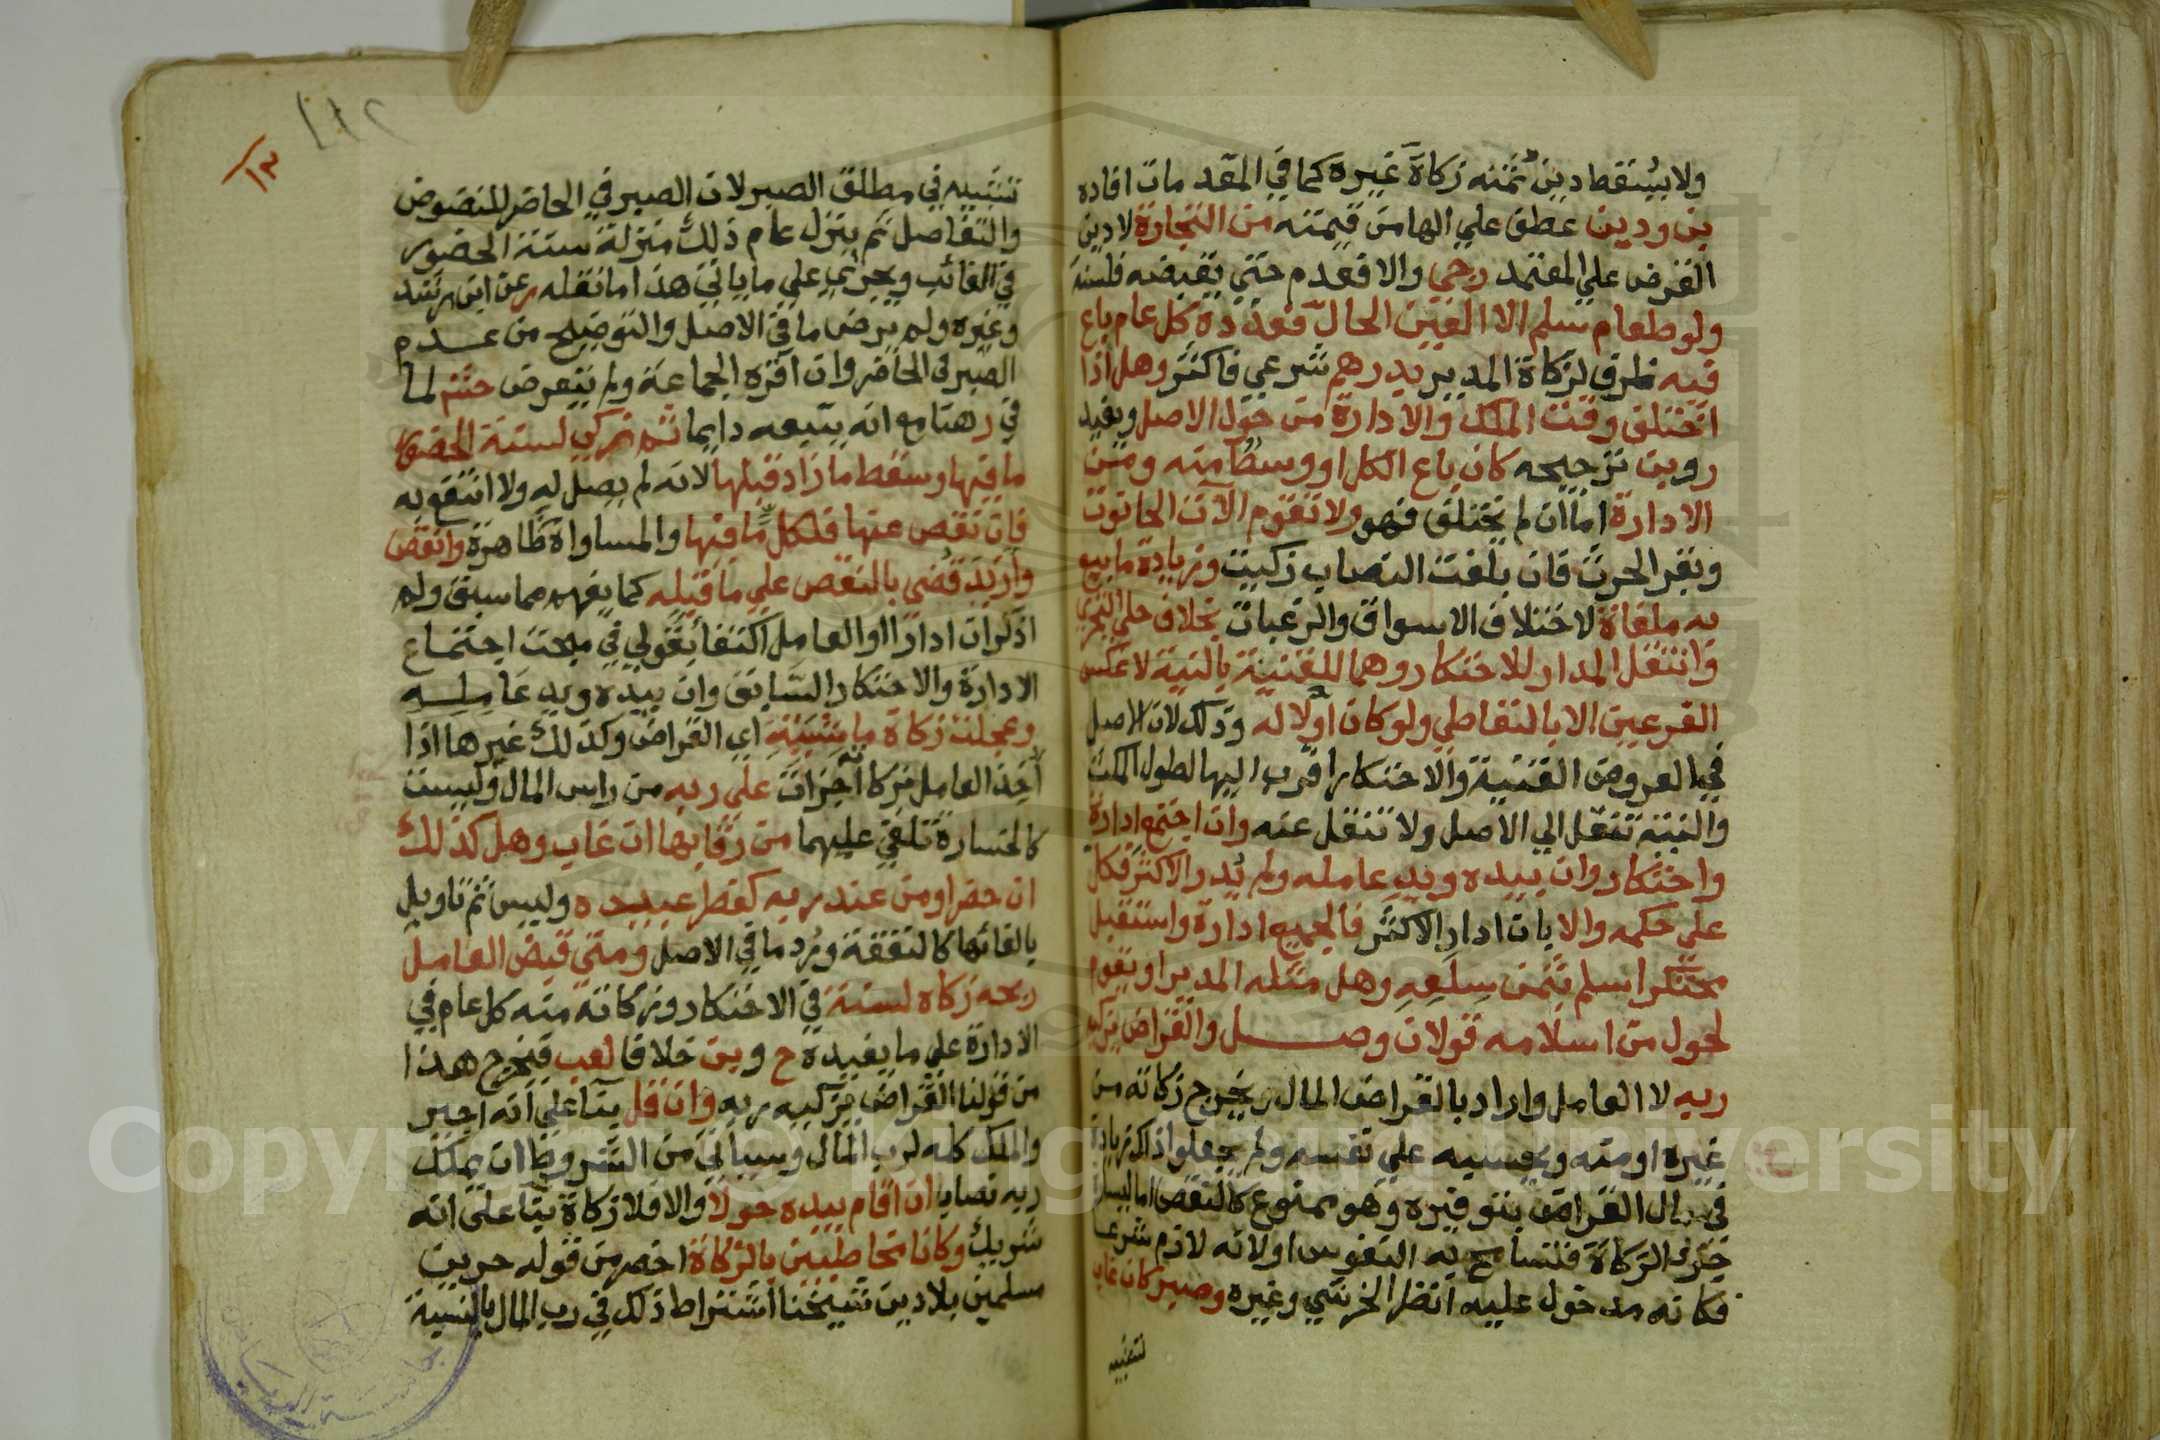 ولا يسقط دين ثمنه زكاة غيره كما في المقدمات افاده
بن ودين عطف علي الها من قيمته من التجارة لا دين
القرض علي المعتمد رجي والا فعدم حتي يقبضه فلسنة
ولو طعام سلم الا العين الحال فعدده كل عام باع
فيه ظرف لزكاة المدير بدرهم شرعي فاكثر وهل اذا
اختلف وقت الملك والادارة من حول الاصل ويفيد
روبن ترجيحه كان باع الكل او وسطا منه ومن
الادارة اما ان لم يختلف فهو ولا تقوم الات الحانوت
وبقر الحرث فان بلغت النصاب زكيت وزيادة ما بيع
به ملغاة لاختلاف الاسواق والرغبات بخلاف حلي التحري
وانتقل المدار للاحتكار وهما للقنية بالنية لا عكس
الفرعين الا بالتعاطي ولو كان اولا له وذلك لان الاصل
في العروض القنية والاحتكار اقرب اليها لطول المكث
والنية تنقل الي الاصل ولا تنقل عنه وان اجتمع ادارة
واحتكار وان بيده ويد عامله ولم يدر الاكثر فكل
علي حكمه والا بان ادار الاكثر فالجميع ادارة واستقبل
محتكر اسلم بثمن سلعه وهل مثله المدير او يقوم
لحول من اسلامه قولان وصل والقراض يزكيه
ربه لا العامل واراد بالقراض المال ويخرج زكاته من
غيره او منه ويحسبه علي نفسه ولم يجعلوا ذلك زيادة
في مال القراض بتوفيره وهو ممنوع كالنقص اما ليسارة
جزء الزكاة فتسامح به النفوس او لانه لازم شرعا
فكانه مدخول عليه انظر الخرشي وغيره وصبر كان غاب
لتغيبه
١٣
١١٢
تنبيه في مطلق الصبر لان الصبر في الحاضر للنضوض
والتفاصل ثم ينزل عام ذلك منزلة سنة الحضور
في الغائب ويجري علي ما ياتي هذا ما نقله ر عن ابن رشد
وغيره ولم يرض ما في الاصل والتوضيح من عدم
الصبر في الحاضر وان اقره الجماعة ولم يتعرض حشم لما
في ر هنا مع انه يتبعه دايما ثم زكي لسنة الحضور
ما فيها وسقط ما زاد قبلها لانه لم يصل له ولا انتفع به
فان نقص عنها فلكل ما فيها والمساواة ظاهرة وانقص
وازيد قضي بالنقص علي ما قبله كما يفهم مما سبق ولم
اذكر ان ادارا او العامل اكتفا بقولي في مبحث اجتماع
الادارة والاحتكار السابق وان بيده ويد عامله
وعجلت زكاة ماشيته اي القراض وكذلك غيرها اذا
اخذ العامل مزكا اجزات علي ربه من راس المال وليست
كالخسارة تلغي عليهما من رقابها ان غاب وهل كذلك
ان حضر او من عند ربه كفطر عبيده وليس ثم تاويل
بالغائها كالنفقة ورد ما في الاصل ومتي قبض العامل
ربحه زكاه لسنة في الاحتكار وزكاته منه كل عام في
الادارة علي ما يفيده ح وبن خلافا لعب فيخرج هذا
من قولنا القراض يزكيه ربه وان قل بنا علي انه اجير
والملك كله لرب المال وسياتي من الشروط ان يملك
ربه نصابا ان اقام بيده حولا والا فلا زكاة بنا علي انه
شريك وكانا مخاطبين بالزكاة اخصر من قوله حرين
مسلمين بلا دين شيخنا اشتراط ذلك في رب المال بالنسبة
Copyright © King Saud University